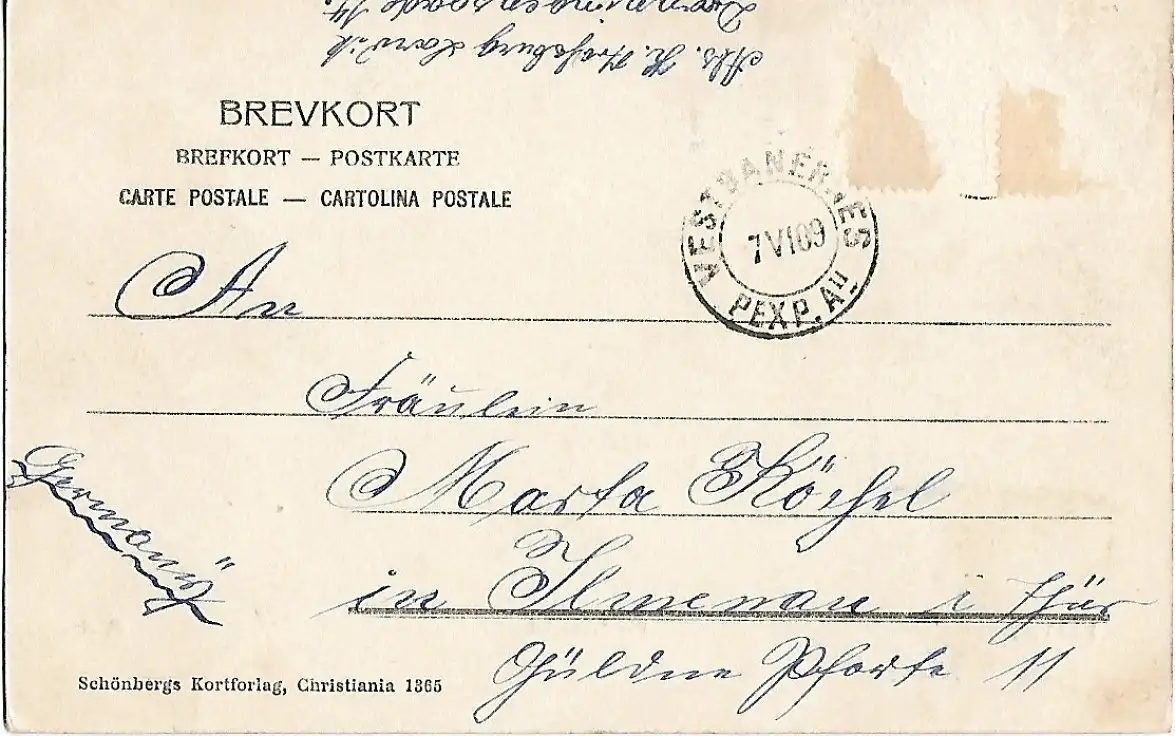 Abs. H. Larvik
14.
BREVKORT
BREFKORT — POSTKARTE
CARTE POSTALE — CARTOLINA POSTALE
VESTBANERNES
7 VI 09
PEXP. AII
An
Fräulein
Marta Köchel
in Ilmenau i Thür
Güldne Pforte 11
Germany
Schönbergs Kortforlag, Christiania 1365